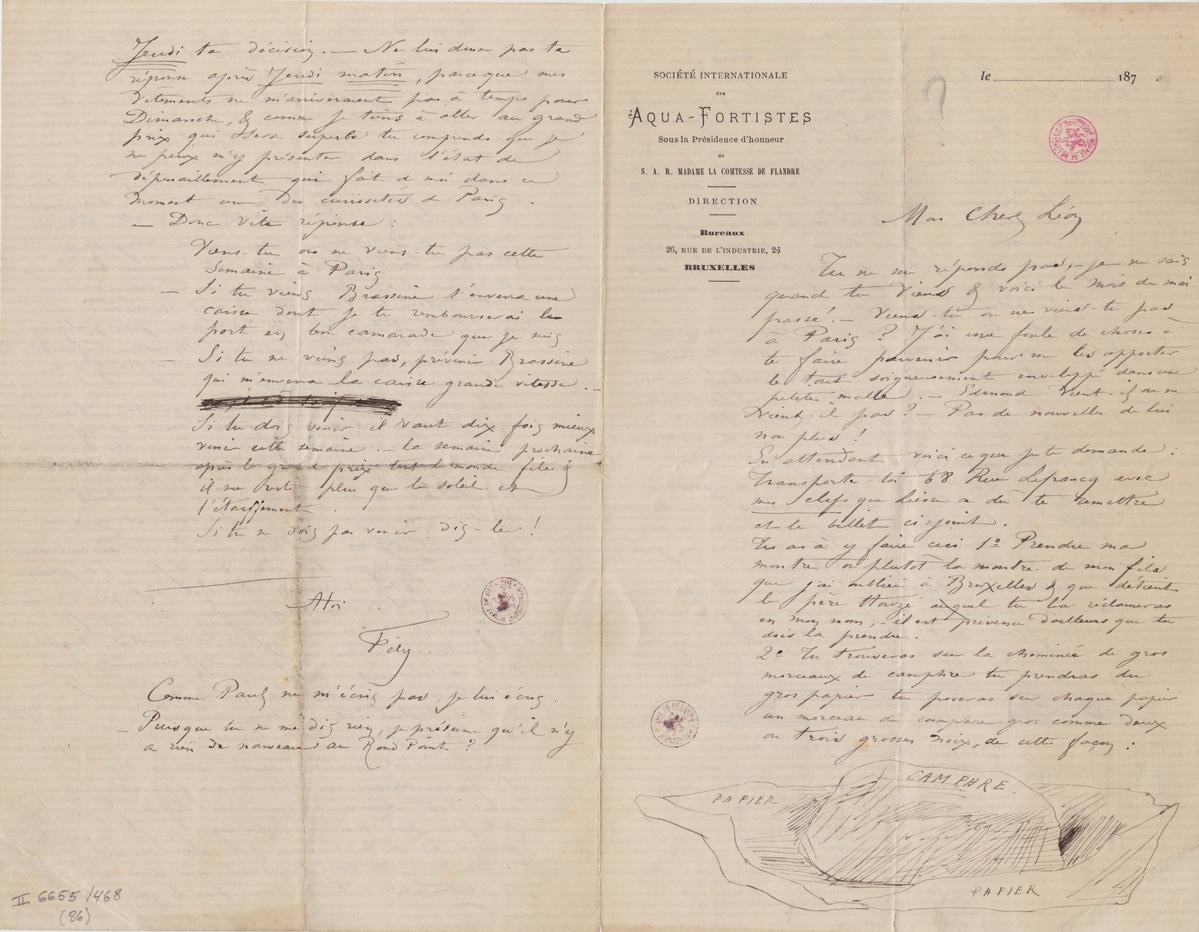 SOCIÉTÉ INTERNATIONALE
des
AQUA-FORTISTES
Sous la Présidence d'honneur
de
S. A. R. MADAME LA COMTESSE DE FLANDRE
DIRECTION
Bureaux
26, RUE DE L'INDUSTRIE, 26
BRUXELLES
le 187
Mon Cher Léon
Tu ne me réponds pas, je ne sais
quand tu viens & voici le mois de mai
passé! — Viens-tu ou ne viens-tu pas
à Paris? J'ai une foule de choses à
te faire parvenir pour me les apporter
le tout soigneusement enveloppé dans une
petite malle. — Edmond vient-il ou ne
vient-il pas? — Pas de nouvelles de lui
non plus!
En attendant voici ce que je te demande:
Transporte toi 68 Rue Lefrancq avec
mes clefs que Liesse a dû te remettre
et le billet ci-joint.
Tu as à y faire ceci 1º Prendre ma
montre ou plutôt la montre de mon fils
que j'ai oubliée à Bruxelles & que détient
le père auquel tu la réclameras
en mon nom, — il est prévenu d'ailleurs que tu
dois la prendre.
2º Tu trouveras sur la cheminée de gros
morceaux de camphre tu prendras du
gros papier tu poseras sur chaque papier
un morceau de camphre gros comme deux
ou trois grosses noix, de cette façon:
PAPIER
CAMPHRE.
PAPIER
Jeudi ta décision. — Ne lui donne pas ta
réponse après Jeudi matin, parce que mes
vêtements ne m'arriveraient pas à temps pour
Dimanche, & comme je tiens à aller au grand
prix qui sera superbe tu comprends que je
ne peux m'y présenter dans l'état de
dépenaillement qui fait de moi dans ce
moment une des curiosités de Paris.
— Donc vite réponse:
Viens-tu ou ne viens-tu pas cette
Semaine à Paris
— Si tu viens Brassine t'enverra une
caisse dont je te rembourserai le
port en bon camarade que je suis
— Si tu ne viens pas, prévenir Brassine
qui m'enverra la caisse grande vitesse. —
Si tu dois venir il vaut dix fois mieux
venir cette semaine. — la semaine prochaine
après le grand prix tout le monde file &
il ne reste plus que le soleil et
l'étouffement.
Si tu ne dois pas venir dis-le!
A toi
Fély
Comme Paul ne m'écris pas, je lui écris.
— Puisque tu ne me dis rien, je présume qu'il n'y
a rien de nouveau au Rond Point?
II 6655/468
(86)